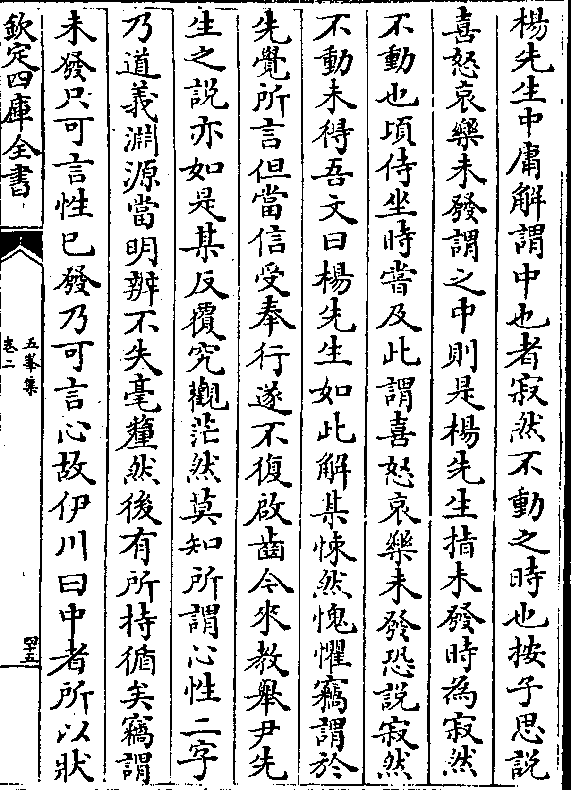 楊先生中庸解謂中也者寂然不動之時也按子思說
喜怒哀樂未發謂之中則是楊先生指未發時為寂然
不動也頃侍坐時嘗及此謂喜怒哀樂未發恐說寂然
不動未得吾文曰楊先生如此解某悚然愧懼竊謂於
先覺所言但當信受奉行遂不復啟齒今來教舉尹先
生之說亦如是某反覆究觀茫然莫知所謂心性二字
乃道義淵源當明辨不失毫釐然後有所持循矣竊謂
未發只可言性已發乃可言心故伊川曰中者所以狀
欽定四庫全書
五峯集
卷二
四十五